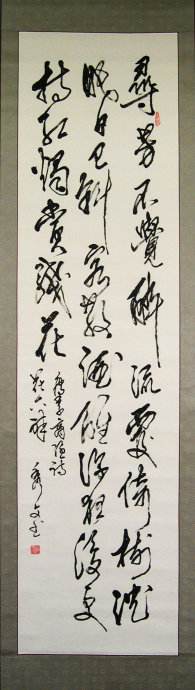 尋芳不覺醉流霞倚樹沈
眠日已斜客散酒醒深夜後更
持紅燭賞殘花
唐李商隱詩
花下醉